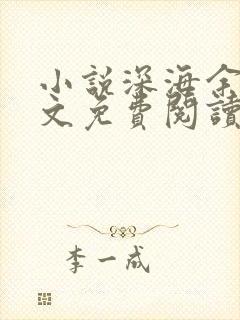 小說深海余
文免費閱讀
李一成